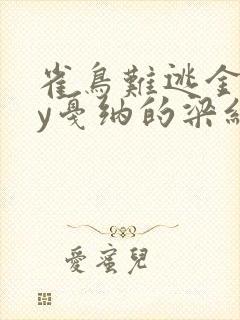 雀鳥難逃金
y戛纳的梁
愛蜜兒